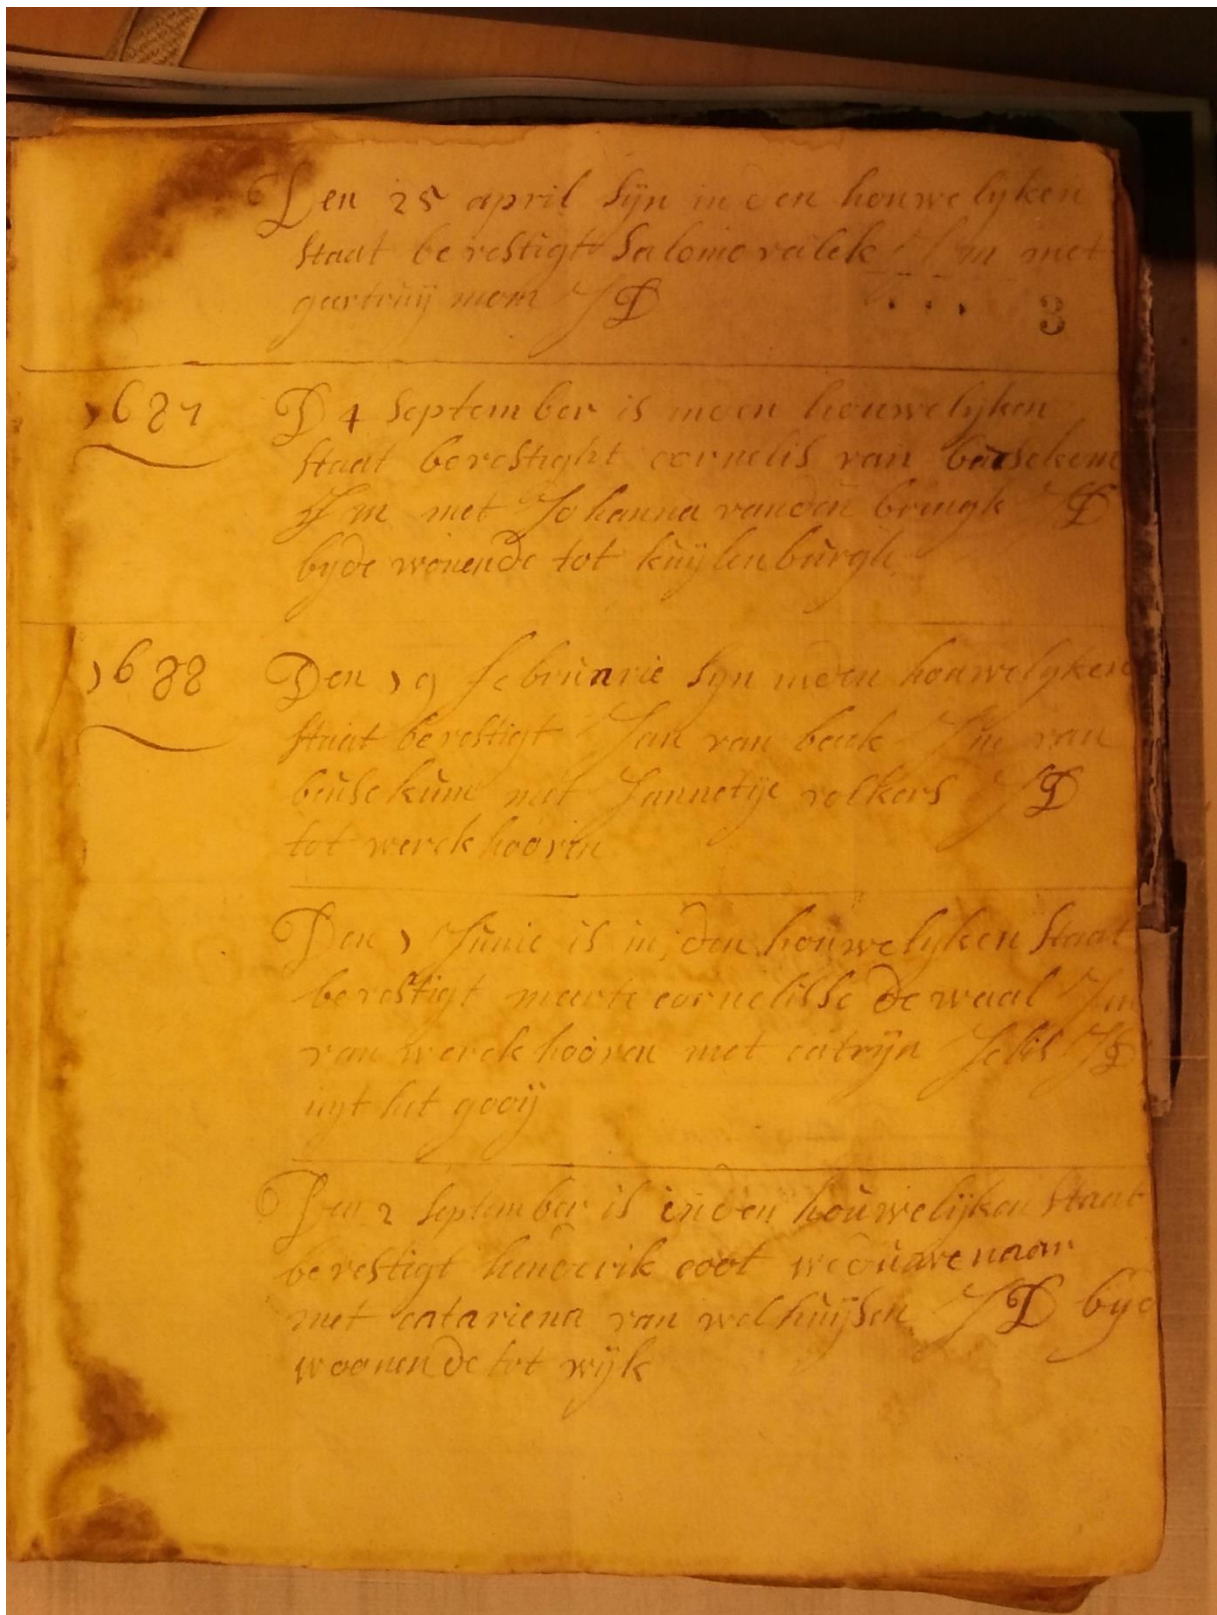 Den 25 april sijn in den houwelijken
staat bevestigt Salomo valck Jm met
gartruij mom JD
3
1687 D 4 September is inden houwelijken
staat bevestight cornelis van buesekom
Jm met Johanna vanden bringk JD
byde wonende tot kuijlenburgh
1688 Den 19 februarie syn inden houwelyken
staat bevestigt Jan van beek Jm van
beusekum met Jannetije volkers JD
tot werckhooven
Den 1 Junie is in den houwelyken Staat
bevestigt marte cornelisse de waal Jm
van werckhooven met catrijn Jelis JD
uyt het gooij
Den 2 September is inden houwelijken staat
bevestigt henderik coot weduwenaar
met catariena van welhuijsen JD byd
woonende tot wijk